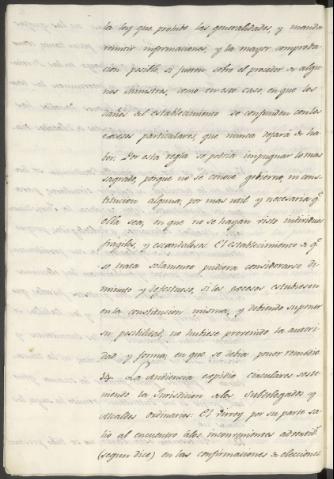 la ley que prohibe las generalidades, y manda
reunir informaciones, y la mayor comproba-
cion posible si fueren sobre el proceder de algu-
nos ministros, como en este caso, en que los
daños del establecimiento se confunden con los
excesos particulares, que nunca dejará de ha-
ber. Por esta regla se podria impugnar lo mas
sagrado, porque no se conoce gobierno, ni cons-
titucion alguna, por mas util y necesaria q.e
ella sea, en que no se hayan visto individuos
fragiles, y escandalosos. El establecimiento de q.e
se trata solamente pudiera considerarse di-
minuto y defectuoso, si los excesos estubiesen
en la constitucion misma, y debiendo suponer
su posibilidad, no hubiese prevenido la autori-
dad y forma, en que se debia poner remedio
La audiencia expidió circulares soste-
niendo la Jurisdiccion a los Subdelegados y
Alcaldes ordinarios: El Virrey por su parte sa-
lió al encuentro a los inconvenientes
(segun dice) en las confirmaciones de elecciones